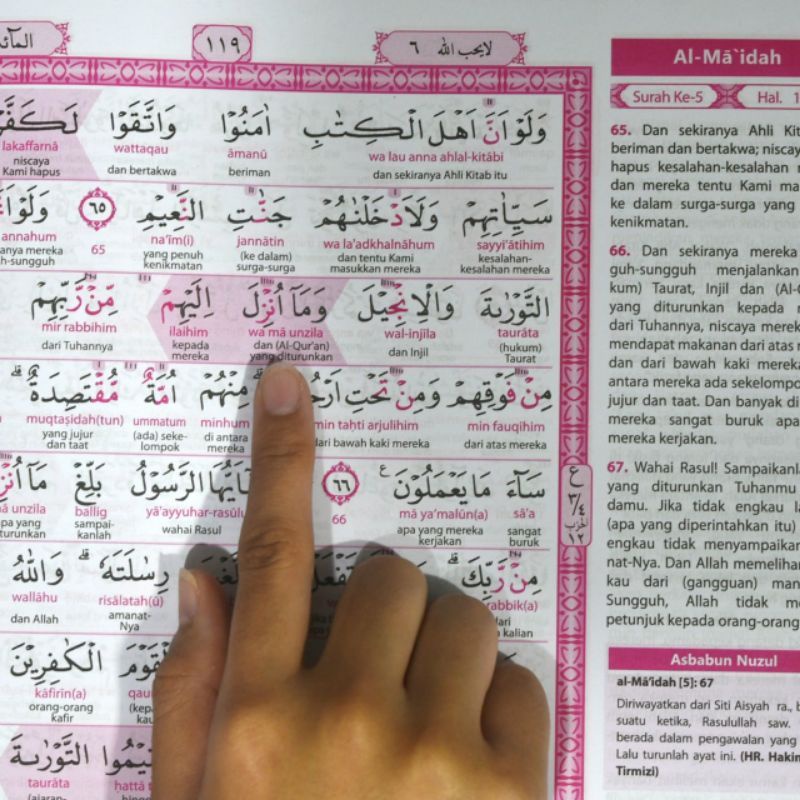 لايحب الله ٦
١١٩
وَلَوْ اَنَّ اَهْلَ الْكِتٰبِ اٰمَنُوْا وَاتَّقَوْا
wa lau anna ahlal-kitābi āmanū wattaqau lakaffarnā
dan sekiranya Ahli Kitab itu beriman dan bertakwa niscaya Kami hapus
سَيِّاٰتِهِمْ وَلَاَدْخَلْنٰهُمْ جَنّٰتِ النَّعِيْمِ ٦٥
sayyi'ātihim wa la'adkhalnāhum jannātin na'īm(i) 65 annahum
kesalahan-kesalahan mereka dan tentu Kami masukkan mereka (ke dalam) surga-surga yang penuh kenikmatan
التَّوْرٰىةَ وَالْاِنْجِيْلَ وَمَآ اُنْزِلَ اِلَيْهِمْ مِّنْ رَّبِّهِمْ
taurāta wal-injīla wa mā unzila ilaihim mir rabbihim
(hukum) Taurat dan Injil dan (Al-Qur'an) yang diturunkan kepada mereka dari Tuhannya
مِنْ فَوْقِهِمْ وَمِنْ تَحْتِ مِنْهُمْ اُمَّةٌ مُّقْتَصِدَةٌ
min fauqihim min taḥti arjulihim minhum ummatum muqtaṣidah(tun)
dari atas mereka dari bawah kaki mereka di antara mereka (ada) sekelompok yang jujur dan taat
سَاۤءَ مَا يَعْمَلُوْنَ ٦٦ الرَّسُوْلُ بَلِّغْ
sā'a mā ya'malūn(a) 66 yā'ayyuhar-rasūlu ballig mā unzila
sangat buruk apa yang mereka kerjakan wahai Rasul sampaikanlah
مِنْ رَّبِّكَ رِسٰلَتَهٗ وَاللّٰهُ
risālatah(ū) wallāhu
amanat-Nya dan Allah
الْكٰفِرِيْنَ
kāfirīn(a)
orang-orang kafir
التَّوْرٰىةَ
taurāta
Al-Mā`idah
Surah Ke-5 Hal. 1
65. Dan sekiranya Ahli
beriman dan bertakwa; niscaya
hapus kesalahan-kesalahan
dan mereka tentu Kami
ke dalam surga-surga yang
kenikmatan.
66. Dan sekiranya mereka
guh-sungguh menjalankan
kum) Taurat, Injil dan
yang diturunkan kepada
dari Tuhannya, niscaya
mendapat makanan dari atas
dan dari bawah kaki
antara mereka ada
jujur dan taat. Dan banyak di
mereka sangat buruk
mereka kerjakan.
67. Wahai Rasul!
yang diturunkan Tuhanmu
damu. Jika tidak engkau
(apa yang diperintahkan itu)
engkau tidak menyampaikan
nat-Nya. Dan Allah memelihara
kau dari (gangguan)
Sungguh, Allah tidak
petunjuk kepada orang-orang
Asbabun Nuzul
al-Mā'idah [5]: 67
Diriwayatkan dari Siti Aisyah ra.,
suatu ketika, Rasulullah saw.
berada dalam pengawalan yang
Lalu turunlah ayat ini. (HR. Hakim
Tirmizi)